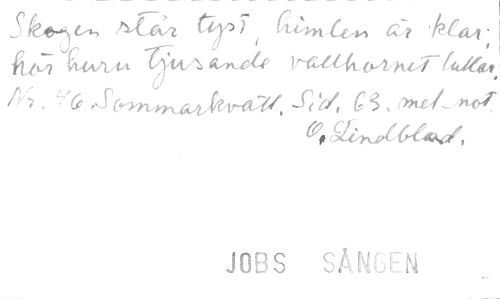 Skogen står tyst, himlen är klar,
hör huru tjusande vallhornet lullar.
Nr. 46 Sommarkväll. Sid. 63. mel-not.
O. Lindblad.
JOBS SÅNGEN